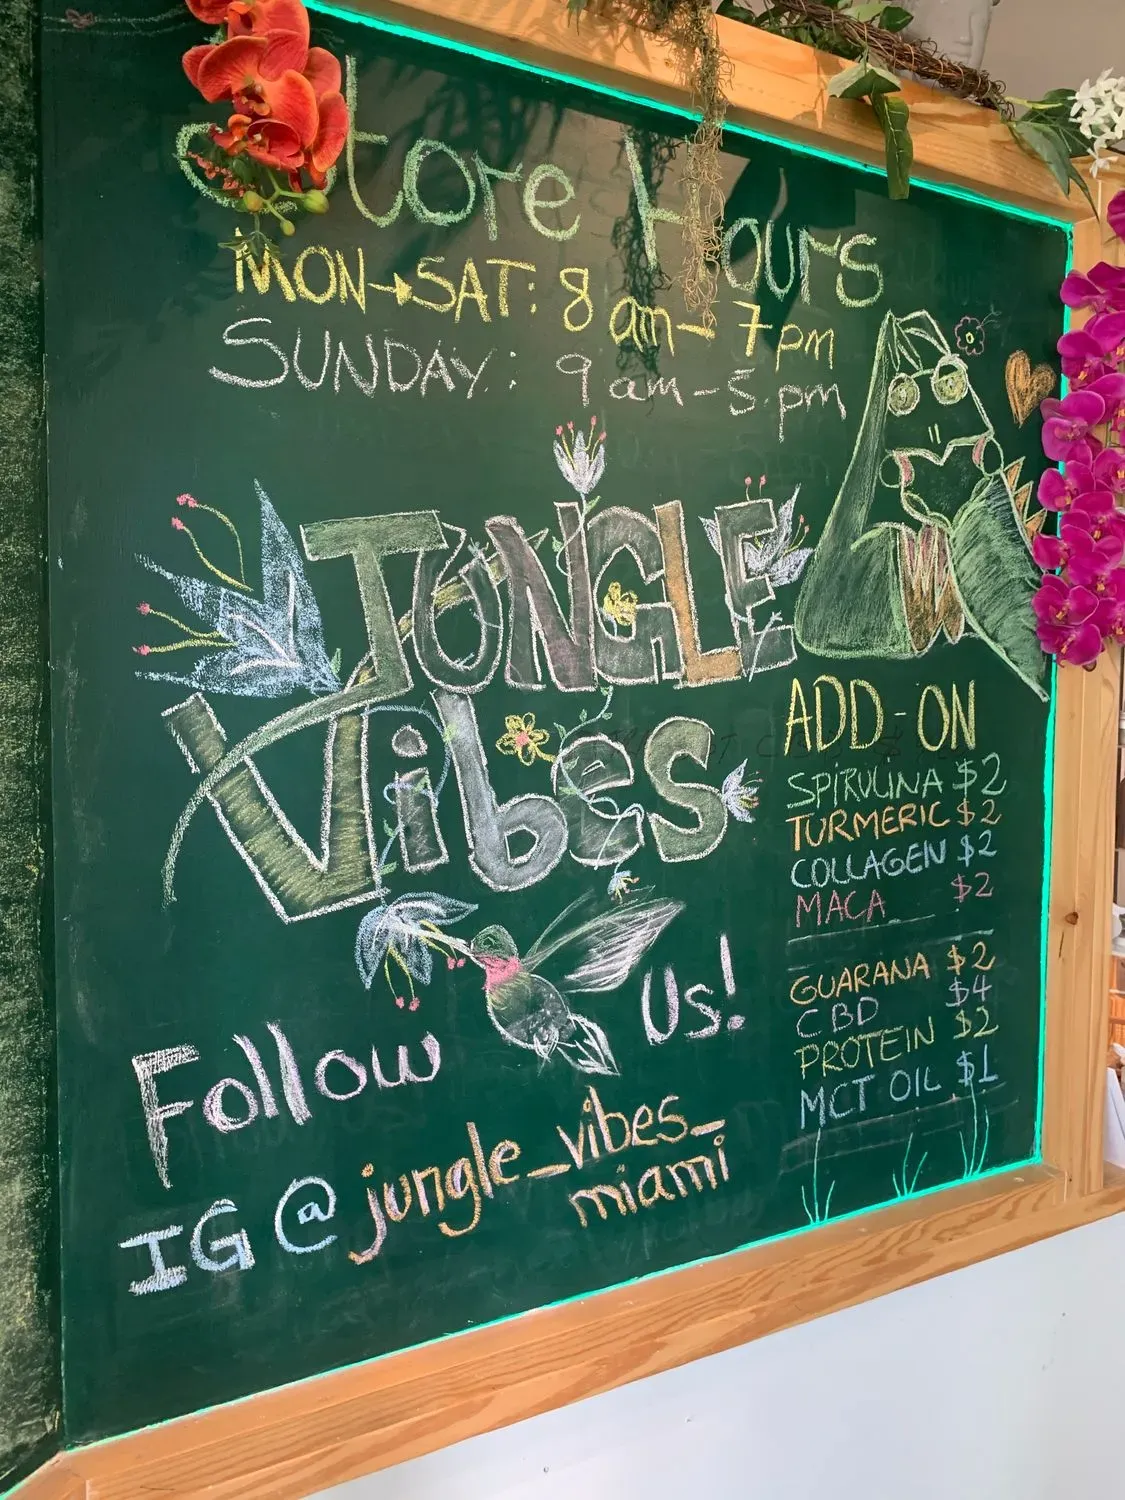 Store Hours
MON→SAT: 8 am - 7 pm
SUNDAY: 9 am - 5 pm
JUNGLE
Vibes
ADD-ON
SPIRULINA $2
TURMERIC $2
COLLAGEN $2
MACA $2
GUARANA $2
CBD $4
PROTEIN $2
MCT OIL $1
Follow Us!
IG @jungle_vibes_
miami